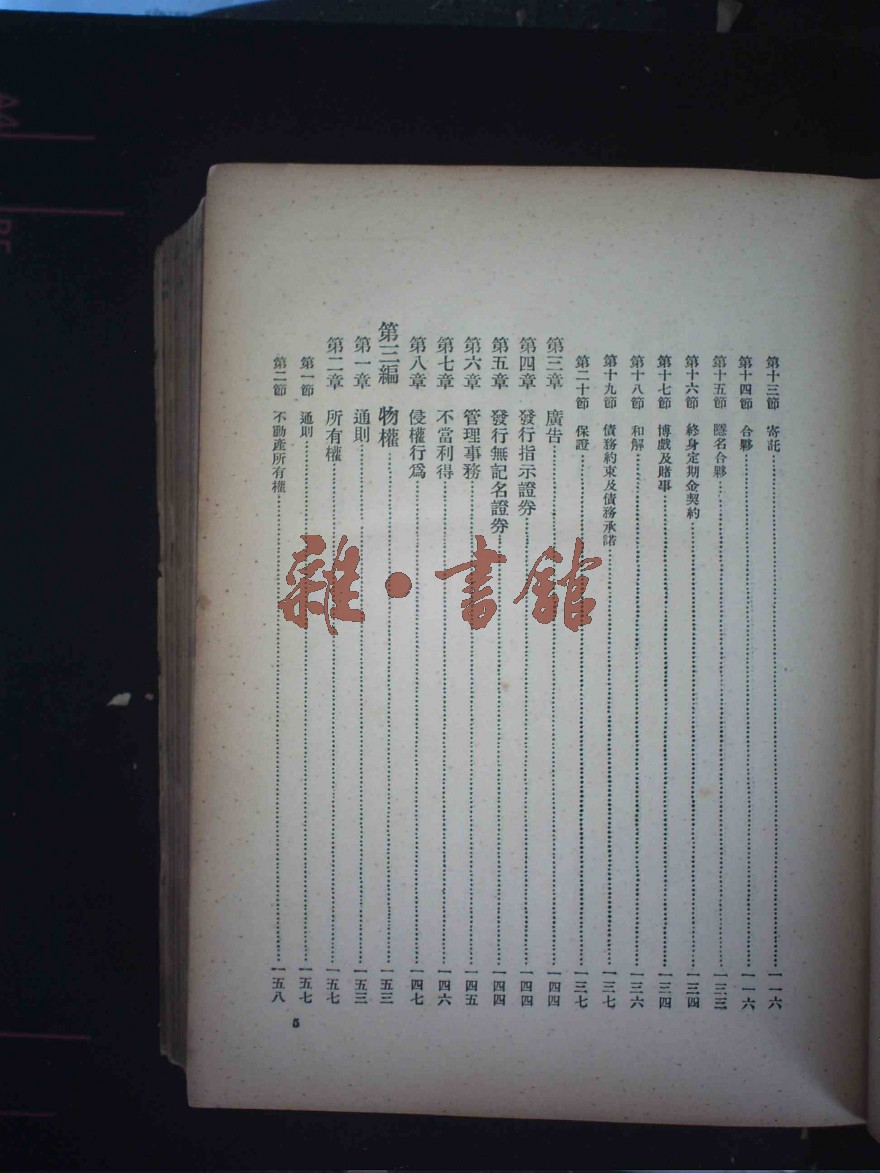 第十三節　寄託……一一六
第十四節　合夥……一一六
第十五節　隱名合夥……一三三
第十六節　終身定期金契約……一三四
第十七節　博戲及賭事……一三四
第十八節　和解……一三六
第十九節　債務約束及債務承諾……一三七
第二十節　保證……一三七
第三章　廣告……一四四
第四章　發行指示證券……一四四
第五章　發行無記名證券……一四四
第六章　管理事務……一四五
第七章　不當利得……一四六
第八章　侵權行爲……一四七
第三編　物權……一五三
第一章　通則……一五三
第二章　所有權……一五七
第一節　通則……一五七
第二節　不動產所有權……一五八
5
雜·書館